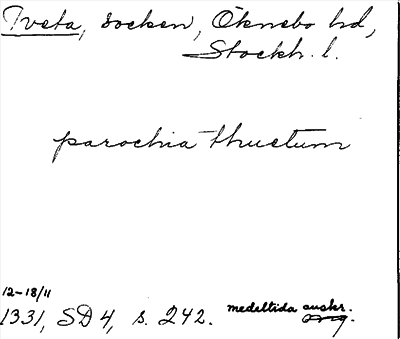 Tveta, socken, Öknebo hd,
Stockh. l.
parochia thuetum
12-18/11
1331, SD 4, s. 242. medeltida avskr.